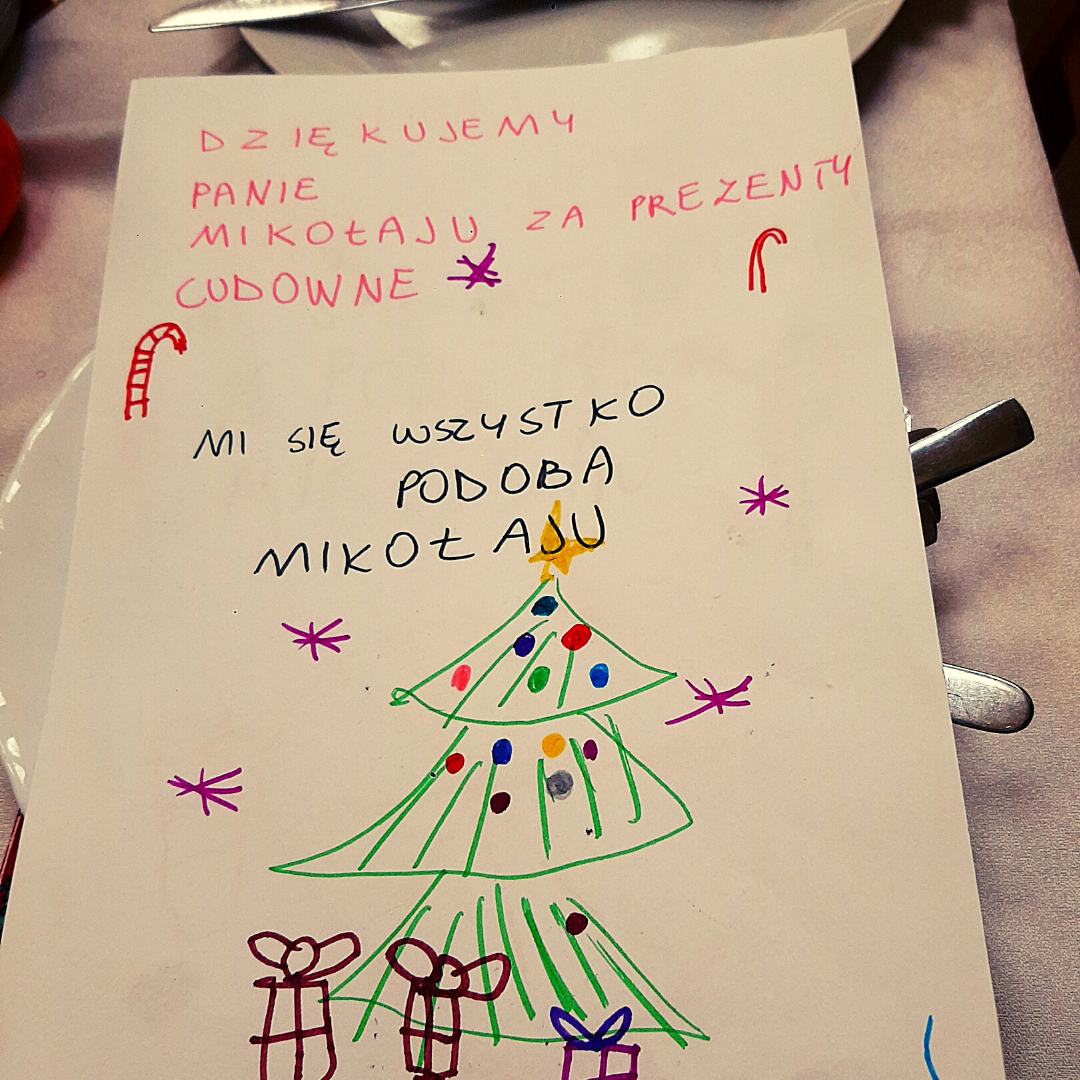 DZIĘKUJEMY
PANIE
MIKOŁAJU ZA PREZENTY
CUDOWNE
MI SIĘ WSZYSTKO
PODOBA
MIKOŁAJU